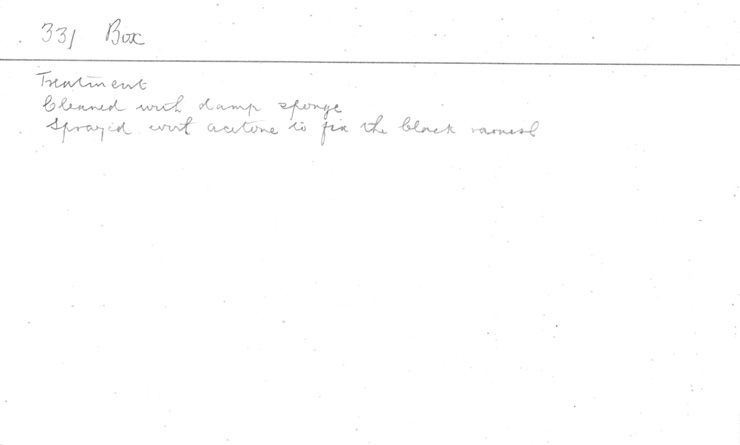 331 Box
Treatment
Cleaned with damp sponge
Sprayed with acetone to fix the black varnish